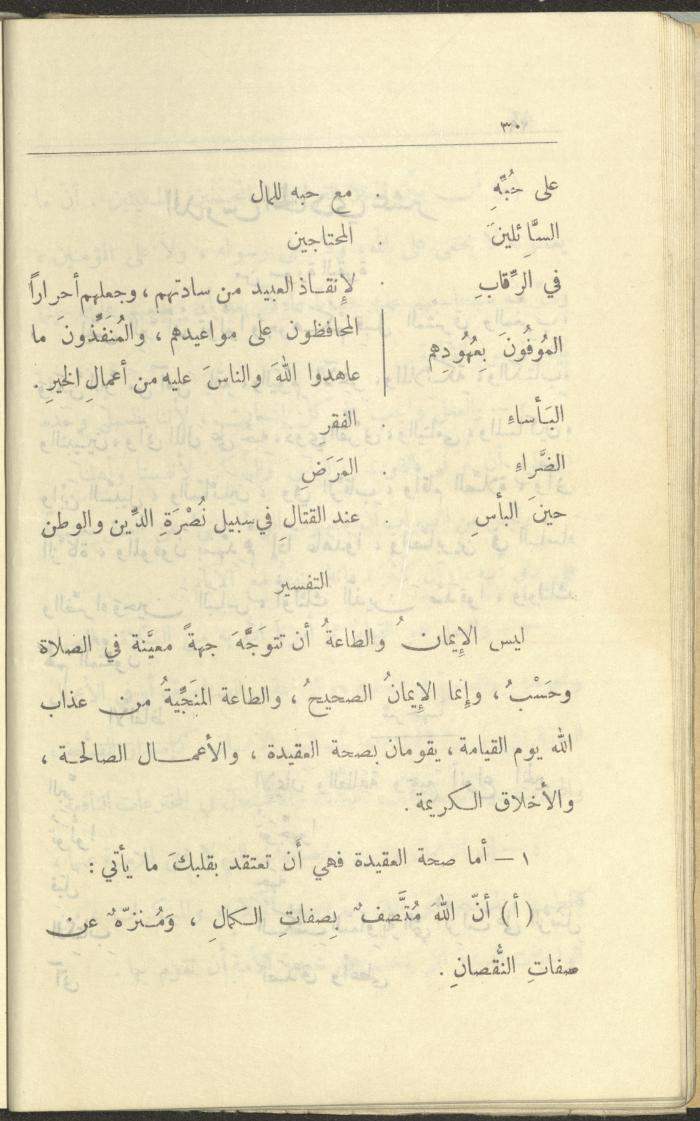 ٣٠
على حُبِّهِ . مع حبه للمال
السَّائِلينَ . المحتاجين
في الرِّقابِ . لإنقاذ العبيد من سادتهم ، وجعلهم أحراراً
المُوفُونَ بِعُهُودِهم المحافظون على مواعيدهم ، والمُنَفِّذُونَ ما
عاهدوا اللهَ والناسَ عليه من أعمالِ الخيرِ .
البَأساءِ . الفقرِ
الضَّراءِ . المَرَضِ
حينَ البأسِ . عند القتالِ في سبيل نُصْرَةِ الدِّينِ والوطن
التفسير
ليس الإِيمانُ والطاعةُ أن تتوَجَّهَ جهةً معيَّنة في الصلاة
وحَسْبُ ، وإنما الإيمانُ الصحيحُ ، والطاعة المنَجِّيةُ من عذاب
الله يوم القيامة ، يقومان بصحة العقيدة ، والأعمال الصالحة ،
والأخلاق الكريمة .
١ — أما صحة العقيدة فهي أن تعتقد بقلبكَ ما يأتي :
(أ) أنّ اللهَ مُتَّصفٌ بِصفاتِ الكمالِ ، وَمُنزّهٌ عن
صفاتِ النُّقصانِ .